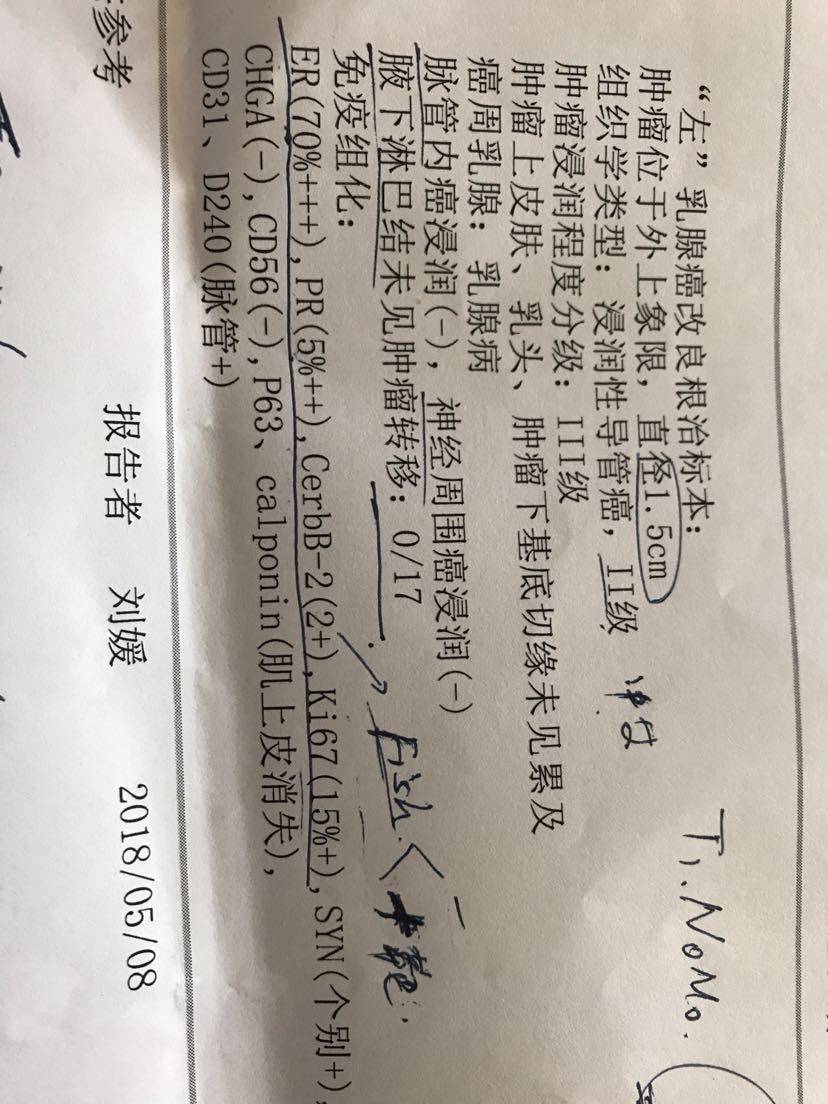 “左”乳腺癌改良根治标本：
肿瘤位于外上象限，直径1.5cm
组织学类型：浸润性导管癌，II级
T1.N0M0.
肿瘤浸润程度分级：III级
肿瘤上皮肤、乳头、肿瘤下基底切缘未见累及
癌周乳腺：乳腺病
脉管内癌浸润(-)，神经周围癌浸润(-)
腋下淋巴结未见肿瘤转移：0/17
Fish
免疫组化：
ER(70%+++),PR(5%++),CerbB-2(2+),Ki67(15%+),SYN(个别+),
CHGA(-),CD56(-),P63、calponin(肌上皮消失),
CD31、D240(脉管+)
参考
报告者 刘媛 2018/05/08